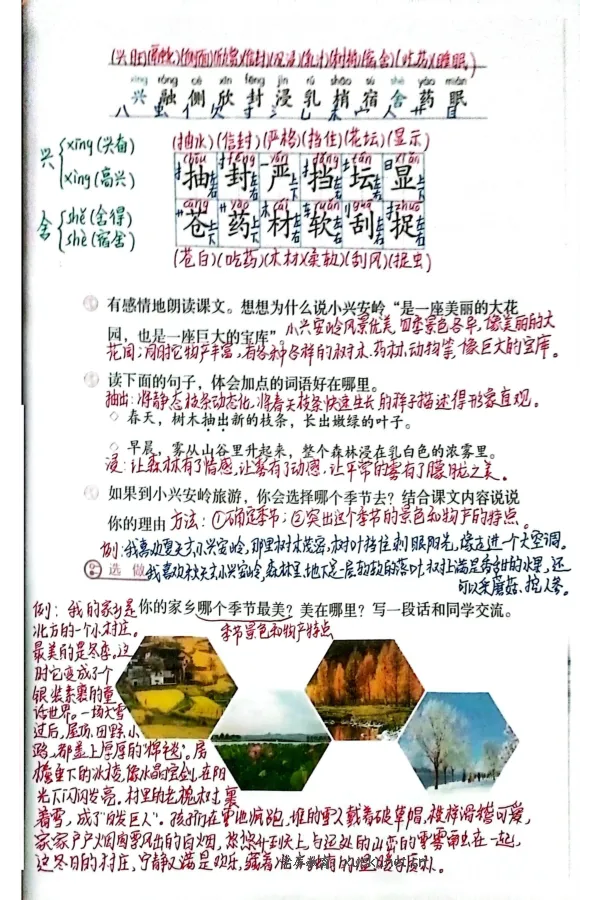 (兴旺)(融化)(侧面)(欣赏)(信封)(沉浸)(乳汁)(树梢)(宿舍)(吃药)(睡眠)
xīng róng cè xīn fēng jìn rǔ shāo sù shě yào mián
兴 融 侧 欣 封 浸 乳 梢 宿 舍 药 眠
(抽水)(信封)(严格)(挡住)(花坛)(显示)
兴 xīng(兴奋)
xìng(高兴)
chōu fēng yán dǎng tán xiǎn
抽 封 严 挡 坛 显
cāng yào cái ruǎn guā zhuō
苍 药 材 软 刮 捉
舍 shě(舍得)
shè(宿舍)
(苍白)(吃药)(木材)(柔软)(刮风)(捉虫)
有感情地朗读课文。想想为什么说小兴安岭“是一座美丽的大花
园,也是一座巨大的宝库”。小兴安岭风景优美,四季景色各异,像美丽的大
花园;同时它物产丰富,有各种各样的树木、药材、动物等,像巨大的宝库。
读下面的句子,体会加点的词语好在哪里。
抽出:将静态枝条动态化,将春天枝条快速生长的样子描述得形象直观。
◇ 春天,树木抽出新的枝条,长出嫩绿的叶子。
◇ 早晨,雾从山谷里升起来,整个森林浸在乳白色的浓雾里。
浸:让森林有了情感,让雾有了动感,让平常的雾有了朦胧之美。
如果到小兴安岭旅游,你会选择哪个季节去?结合课文内容说说
你的理由 方法:①确定季节;②突出这个季节的景色和物产的特点。
例:我喜欢夏天去小兴安岭,那里树木茂密,树叶挡住刺眼阳光,像走进一个大空调。
选做 我喜欢秋天去小兴安岭,森林里,地下是一层的落叶,树上满是香甜的水果,还
可以采蘑菇、挖人参。
你的家乡哪个季节最美?美在哪里?写一段话和同学交流。
季节景色和物产特点
例:我的家乡是
北方的一个小村庄。
最美的是冬季,这
时它变成了个
银装素裹的童
话世界。一场大雪
过后,屋顶、田野、小
路,都盖上厚厚的“棉毯”。房
檐垂下的冰棱,像水晶宝剑,在阳
光下闪闪发亮。村里的老槐树裹
着雪,成了“白发巨人”。孩子们在雪地疯跑,堆的雪人戴着破草帽,模样滑稽可爱,
家家户户烟囱里冒出的白烟,悠悠升到天上,与远处的山峦的雾霭
这冬日的村庄,宁静又满是欢乐,藏着